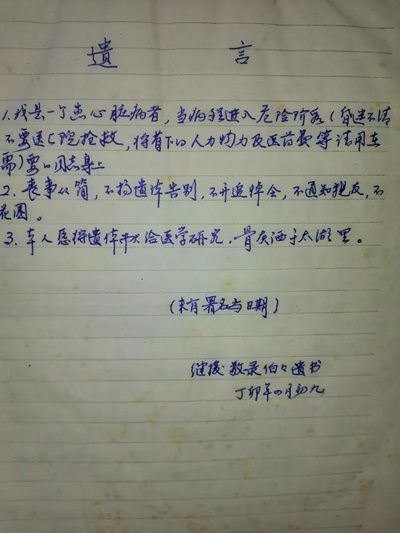 遗 言
1. 我是一个患心脏病者，当病程进入危险阶段（昏迷不清
不要送医院抢救，将省下的人力物力及医药费等请用在
需要的同志身上
2. 丧事从简，不搞遗体告别，不开追悼会，不通知亲友，不
花圈。
3. 本人愿将遗体献给医学研究，骨灰洒于太湖里。
（未有署名与日期）
敬录伯伯遗书
丁卯年四月初九